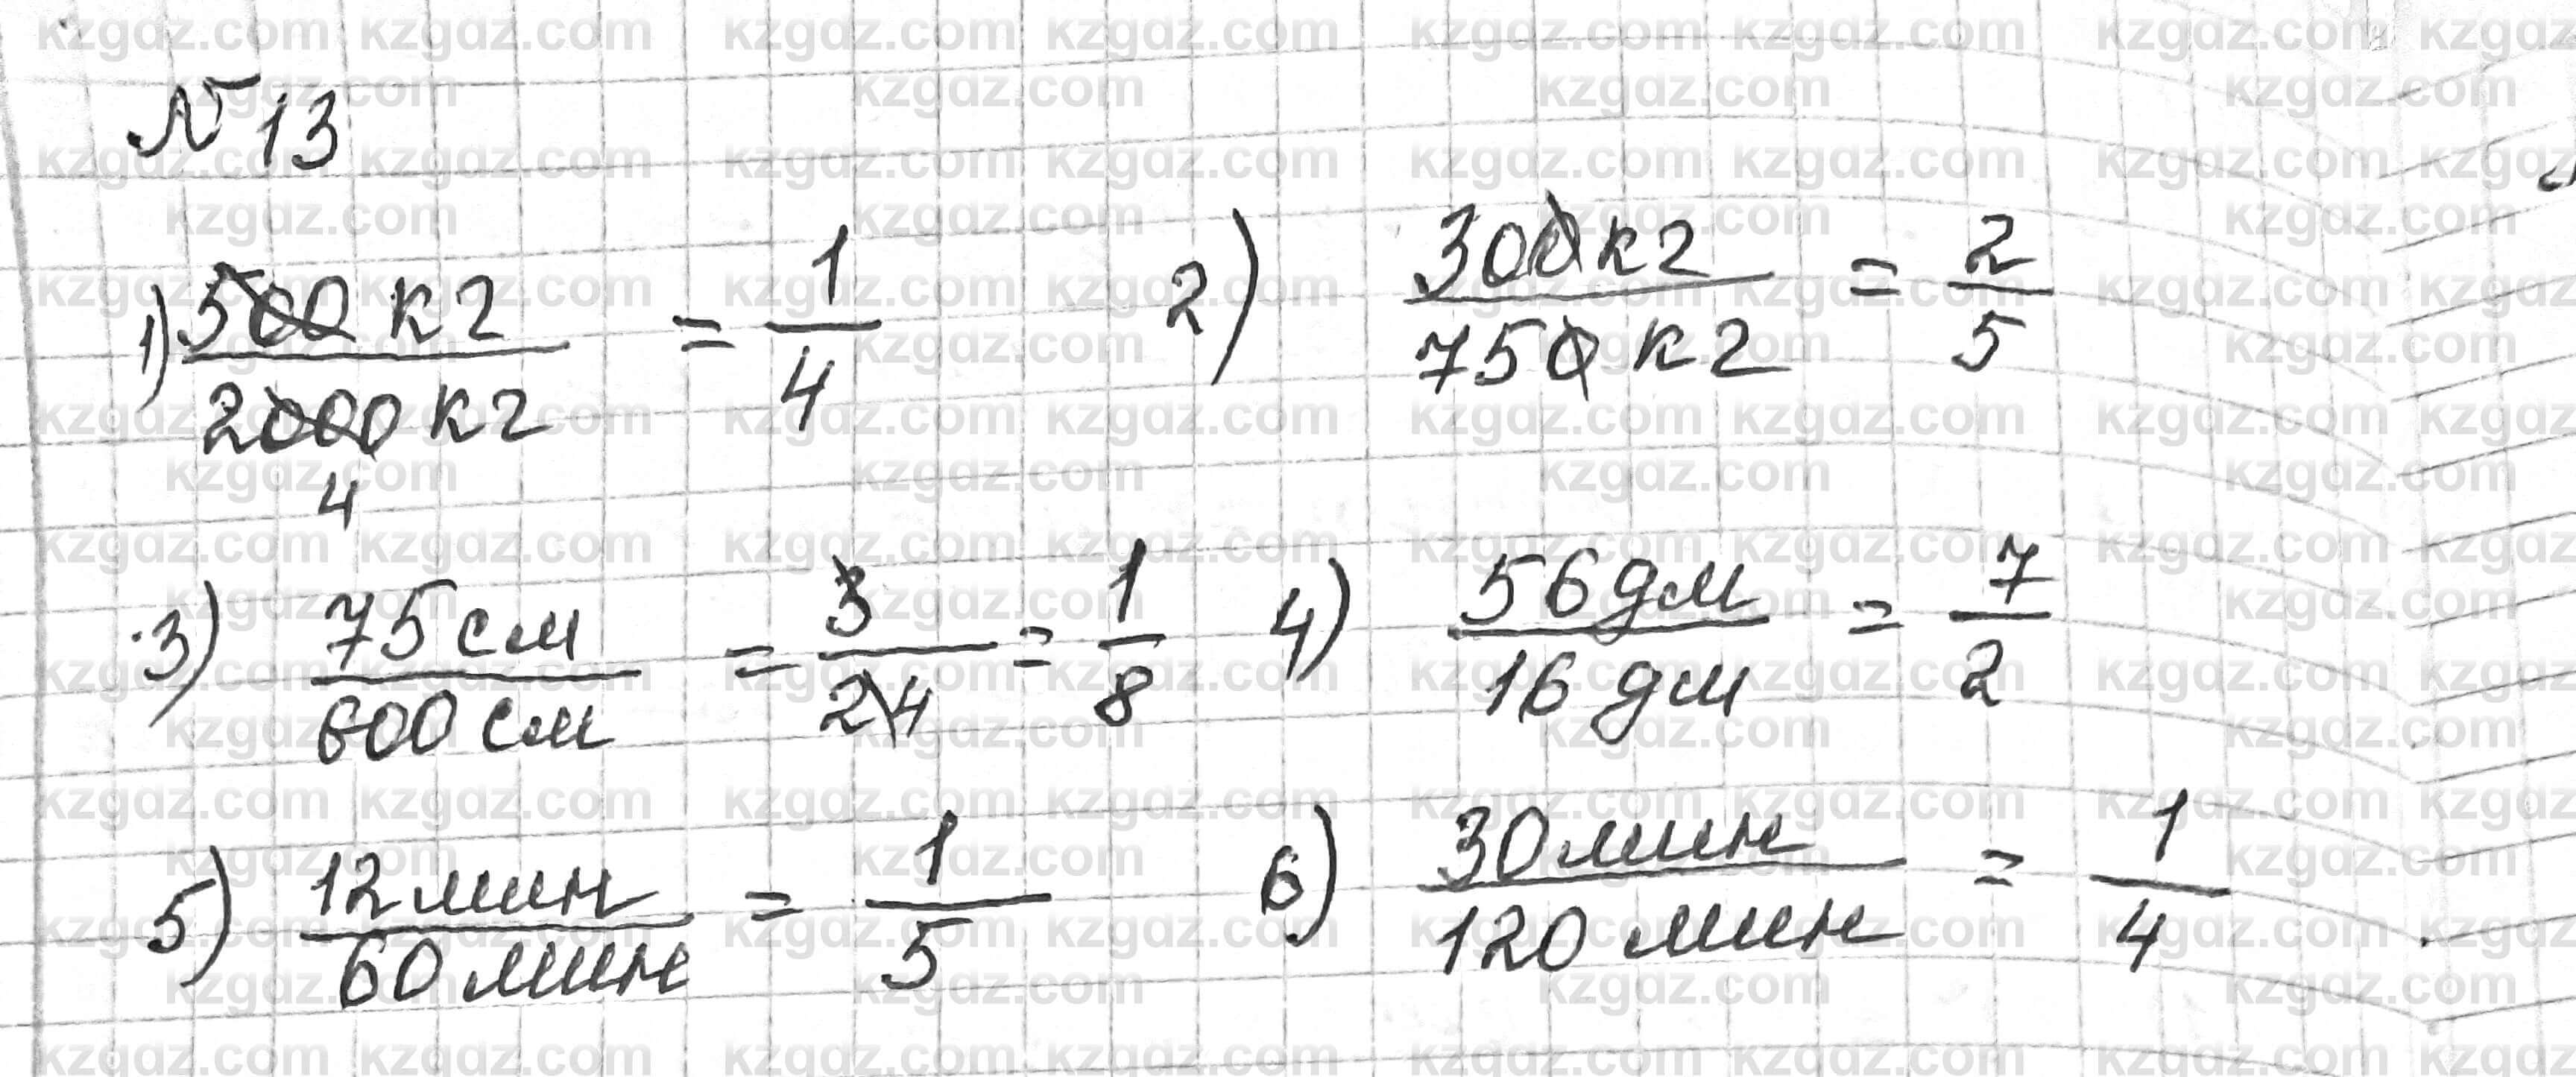 №13
1) 500 кг / 2000 кг = 1/4
4
2) 300 кг / 750 кг = 2/5
3) 75 см / 600 см = 3/24 = 1/8
4) 56 дм / 16 дм = 7/2
5) 12 мин / 60 мин = 1/5
6) 30 мин / 120 мин = 1/4
kzgdz.com